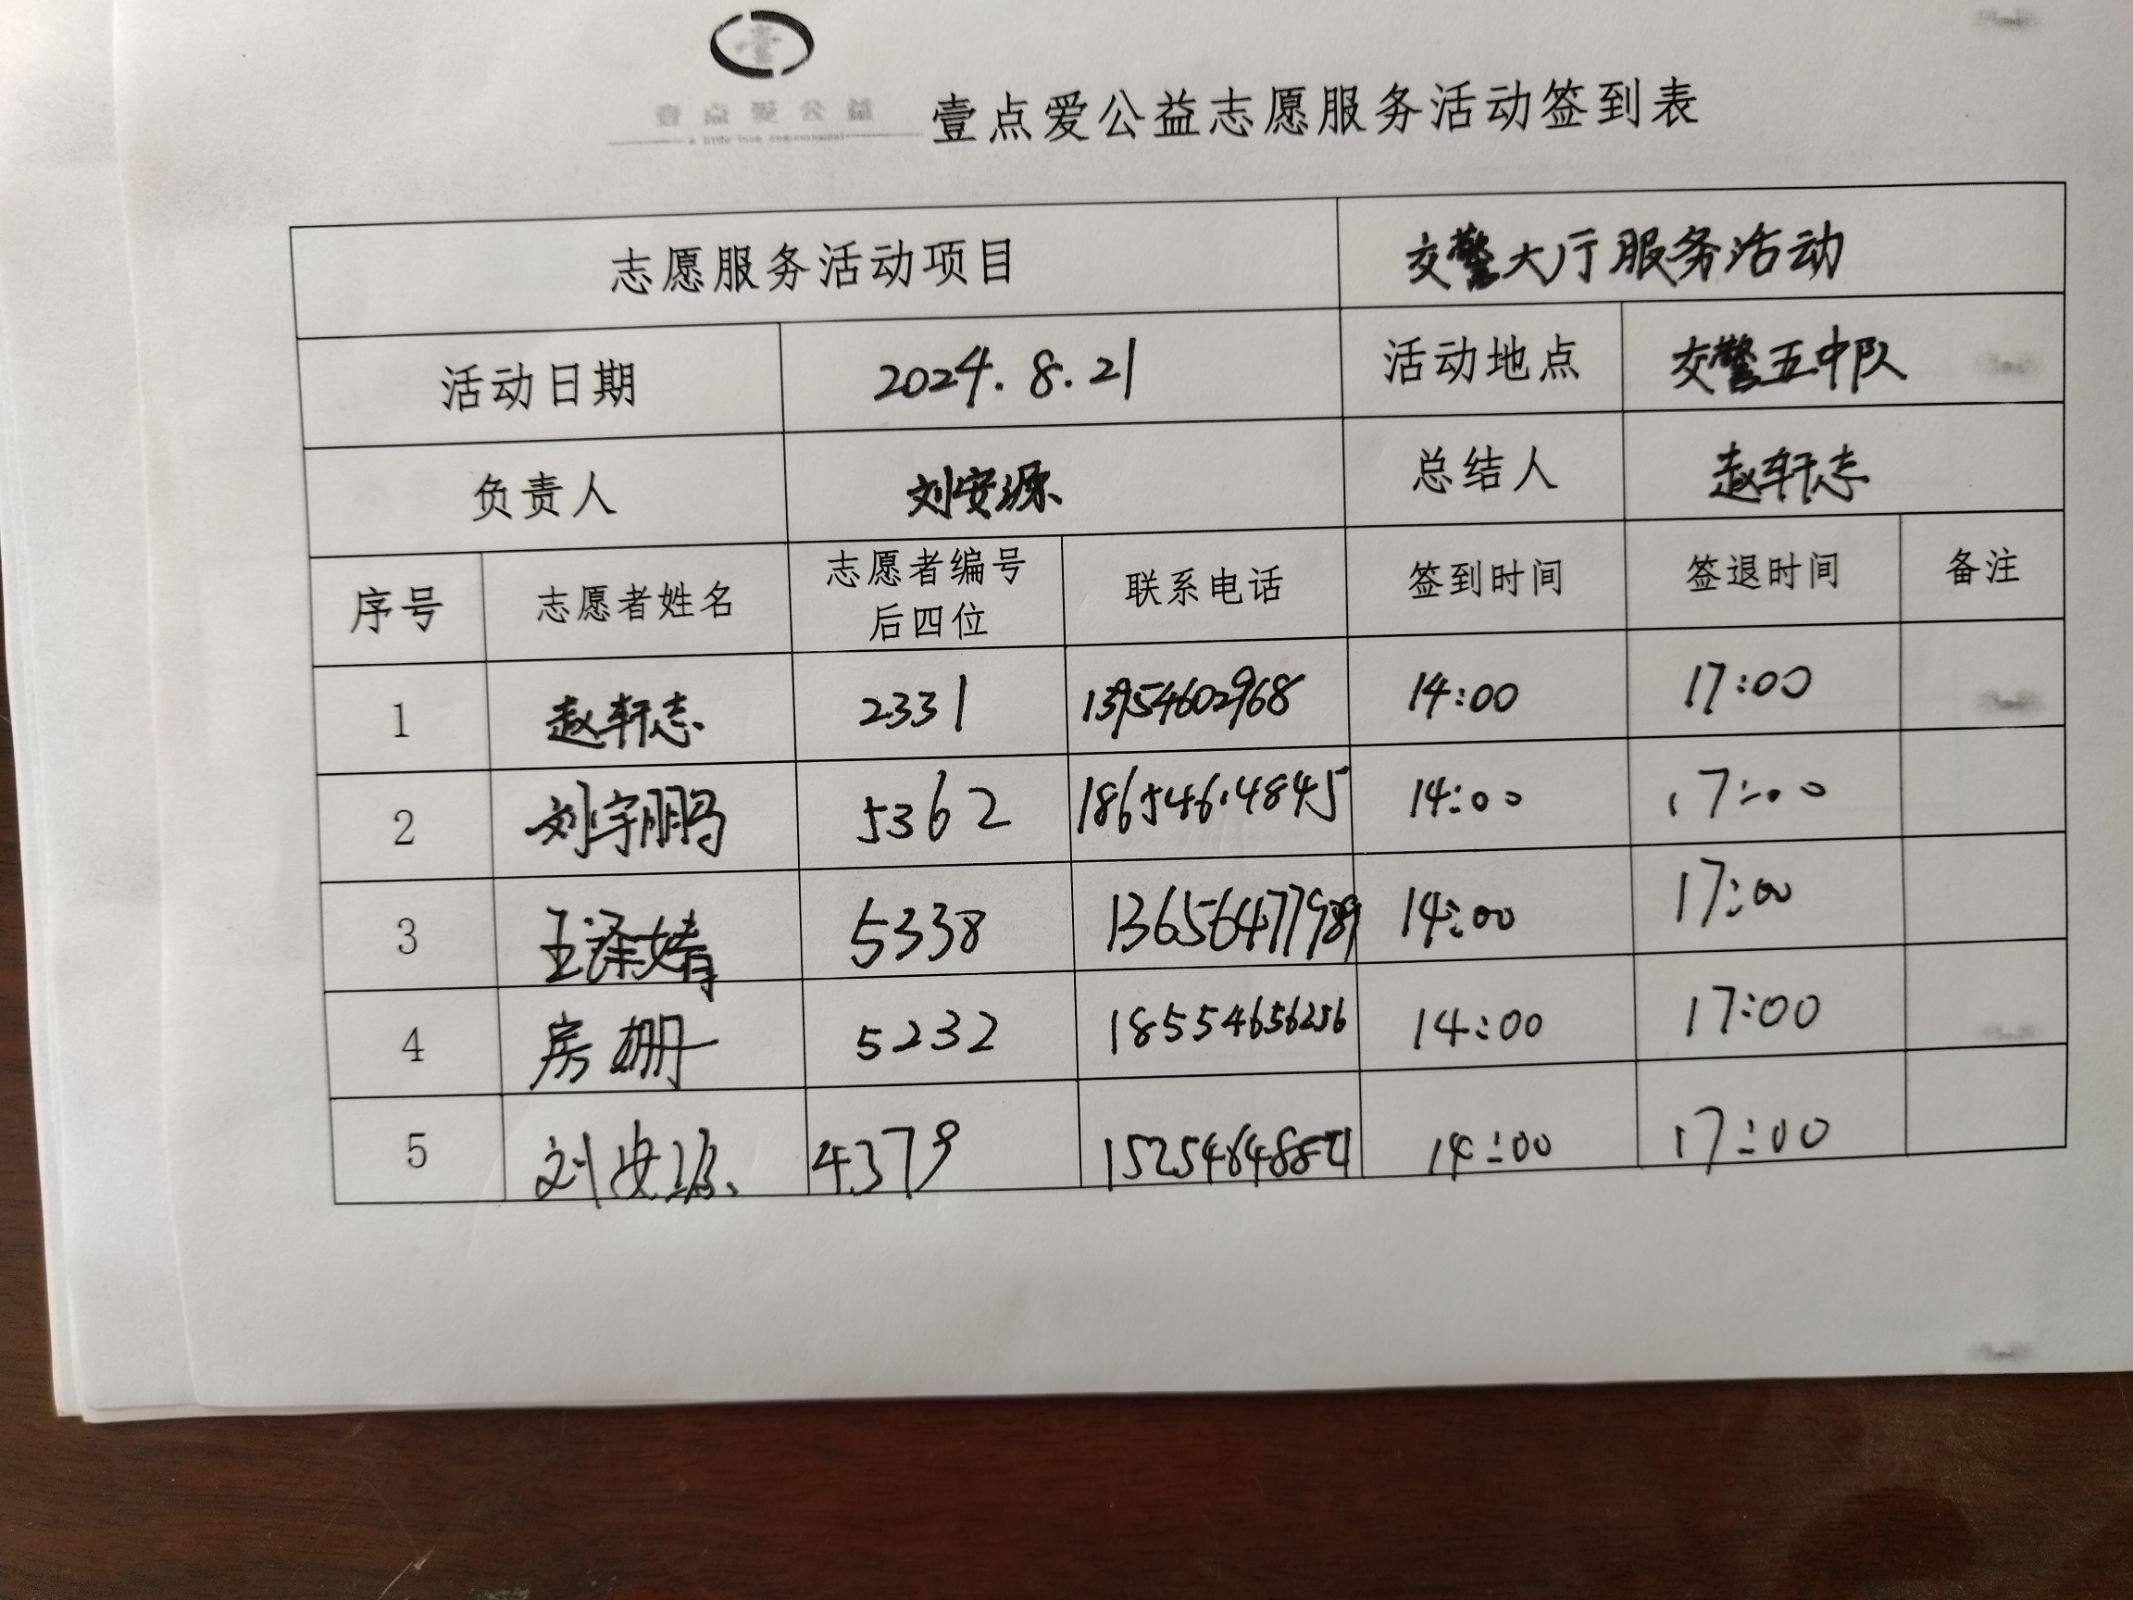 壹点爱公益
壹点爱公益志愿服务活动签到表
志愿服务活动项目 交警大厅服务活动
活动日期 2024.8.21 活动地点 交警五中队
负责人 刘安源 总结人 赵轩志
序号 志愿者姓名 志愿者编号后四位 联系电话 签到时间 签退时间 备注
1 赵轩志 2331 13954602968 14:00 17:00
2 刘宇鹏 5362 18654614845 14:00 17:00
3 王泽婧 5338 14:00 17:00
4 房姗 5232 18554656256 14:00 17:00
5 刘安源 4379 14:00 17:00